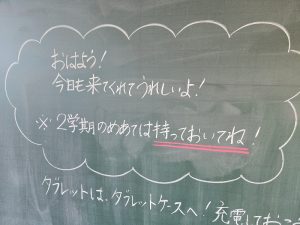 おはよう!
今日も来てくれてうれしいよ!
※2学期のめあては持っておいてね!
タブレットは、タブレットケースへ!充電しておこ